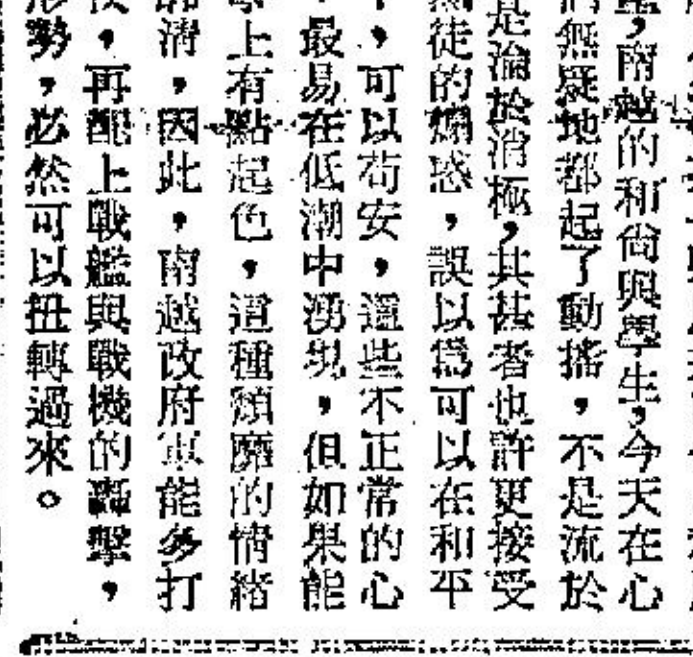 南越的和尚與學生，今天在心
無疑地都起了動搖，不是流於
是淪於消極，其甚者也許更接受
徒的煽惑，誤以爲可以在和平
，可以苟安，這些不正常的心
最易在低潮中湧現，但如果能
上有點起色，這種頹靡的情緒
清，因此，南越政府軍能多打
，再配上戰艦與戰機的轟擊，
勢，必然可以扭轉過來。